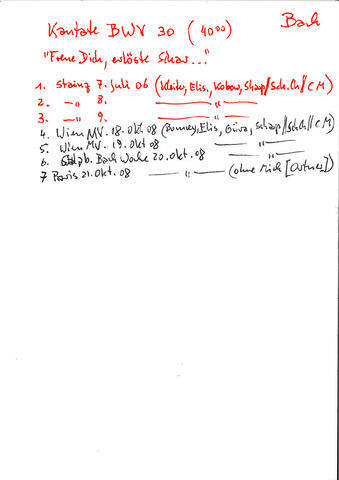 Kantate BWV 30 (40'00) Bach
"Freue Dich, erlöste Schar..."
1. Stainz 7. Juli 06 (Kleiter, Elis., Kobow, Scharp//Sch.Ch//CM
2. -"- 8. -"-
3. -"- 9. -"-
4. Wien MV. 18. Okt 08 (Bonney, Elis., Güra, Scharp//Sch.Ch//CM)
5. Wien MV. 19. Okt 08 -"-
6. Bach Woche 20. Okt. 08 -"-
7 Paris 21. Okt. 08 -"- (ohne Mich [Ortner])